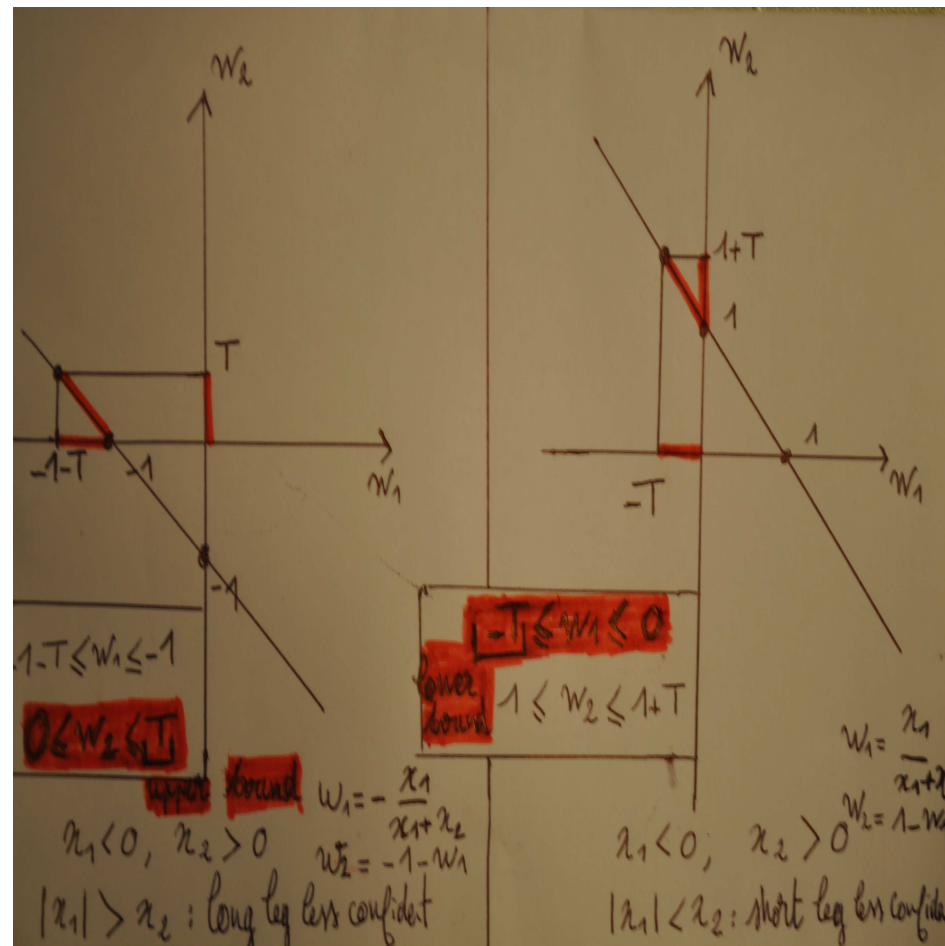 W₂
T
-1-T
-1
W₁
-1
1-T ≤ W₁ ≤ -1
0 ≤ W₂ ≤ T
upper bound
W₁ = - x₁/(x₁+x₂)
W₂ = -1-W₁
x₁ < 0, x₂ > 0
|x₁| > x₂ : long leg less confident
W₂
1+T
1
1
-T
W₁
-T ≤ W₁ ≤ 0
lower
bound
1 ≤ W₂ ≤ 1+T
W₁ = x₁/(x₁+
W₂ = 1-W
x₁ < 0, x₂ > 0
|x₁| < x₂ : short leg less confide